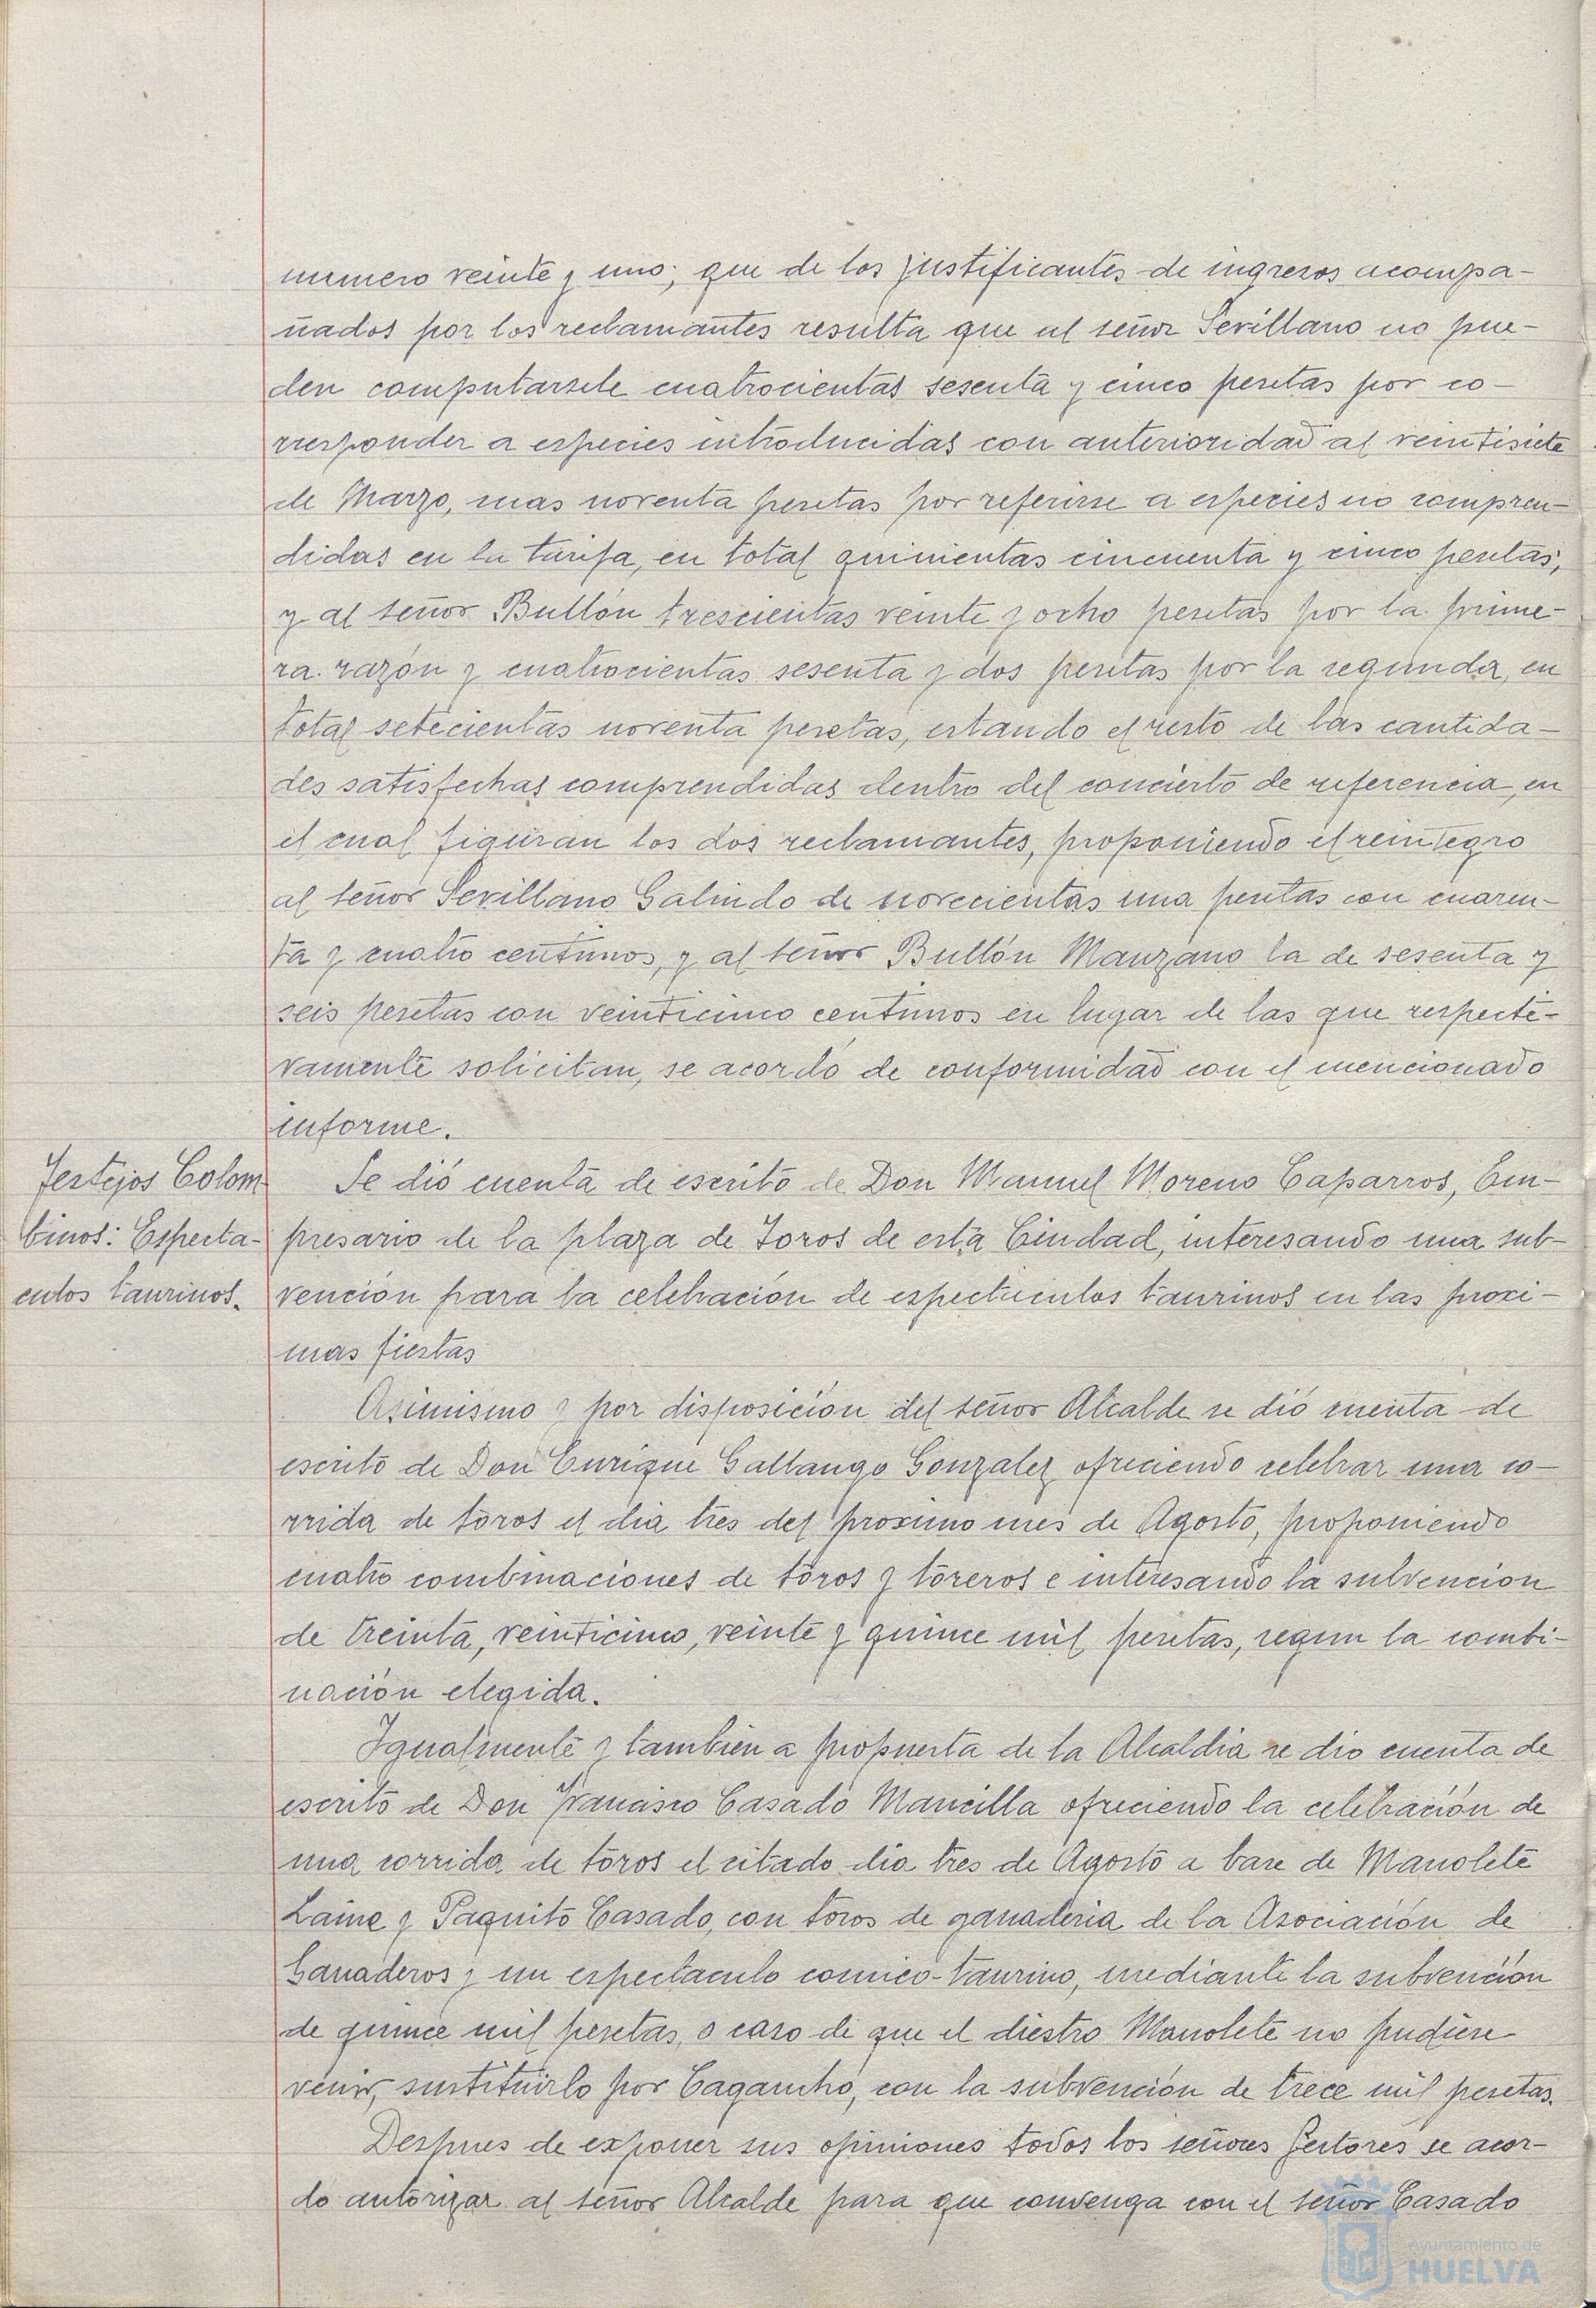 numero veinte y uno; que de los justificantes de ingresos acompa-
ñados por los reclamantes resulta que al señor Sevillano no pue-
den computarsele cuatrocientas sesenta y cinco pesetas por co-
rresponder a especies introducidas con anterioridad al veintisiete
de Marzo, mas noventa pesetas por referirse a especies no compren-
didas en la tarifa, en total quinientas cincuenta y cinco pesetas,
y al señor Bullón trescientas veinte y ocho pesetas por la prime-
ra razón y cuatrocientas sesenta y dos pesetas por la segunda, en
total setecientas noventa pesetas, estando el resto de las cantida-
des satisfechas comprendidas dentro del concierto de referencia, en
el cual figuran los dos reclamantes, proponiendo el reintegro
al señor Sevillano Galindo de novecientas una pesetas con cuaren-
ta y cuatro centimos, y al señor Bullón Manzano la de sesenta y
seis pesetas con veinticinco centimos en lugar de las que respecti-
vamente solicitan, se acordó de conformidad con el mencionado
informe.
Festejos Colom
binos: Especta-
culos taurinos.
Se dió cuenta de escrito de Don Manuel Moreno Caparros, Em-
presario de la plaza de Toros de esta Ciudad, interesando una sub-
vención para la celebración de espectaculos taurinos en las proxi-
mas fiestas
Asimismo y por disposición del señor Alcalde se dió cuenta de
escrito de Don Enrique Gallango Gonzalez ofreciendo celebrar una co-
rrida de toros el dia tres del proximo mes de Agosto, proponiendo
cuatro combinaciones de toros y toreros e interesando la subvencion
de treinta, veinticinco, veinte y quince mil pesetas, segun la combi-
nación elegida.
Igualmente y tambien a propuesta de la Alcaldia se dio cuenta de
escrito de Don Francisco Casado Mancilla ofreciendo la celebración de
una corrida de toros el citado dia tres de Agosto a base de Manolete
Laine y Paquito Casado, con toros de ganaderia de la Asociación de
Ganaderos y un espectaculo comico-taurino, mediante la subvención
de quince mil pesetas, o caso de que el diestro Manolete no pudiere
venir, sustituirlo por Cagancho, con la subvención de trece mil pesetas.
Despues de exponer sus opiniones todos los señores Gestores se acor-
do autorizar al señor Alcalde para que convenga con el señor Casado
Ayuntamiento de
HUELVA